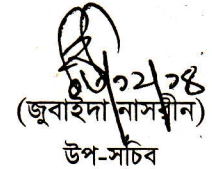 (জুবাইদা নাসরীন)
উপ-সচিব